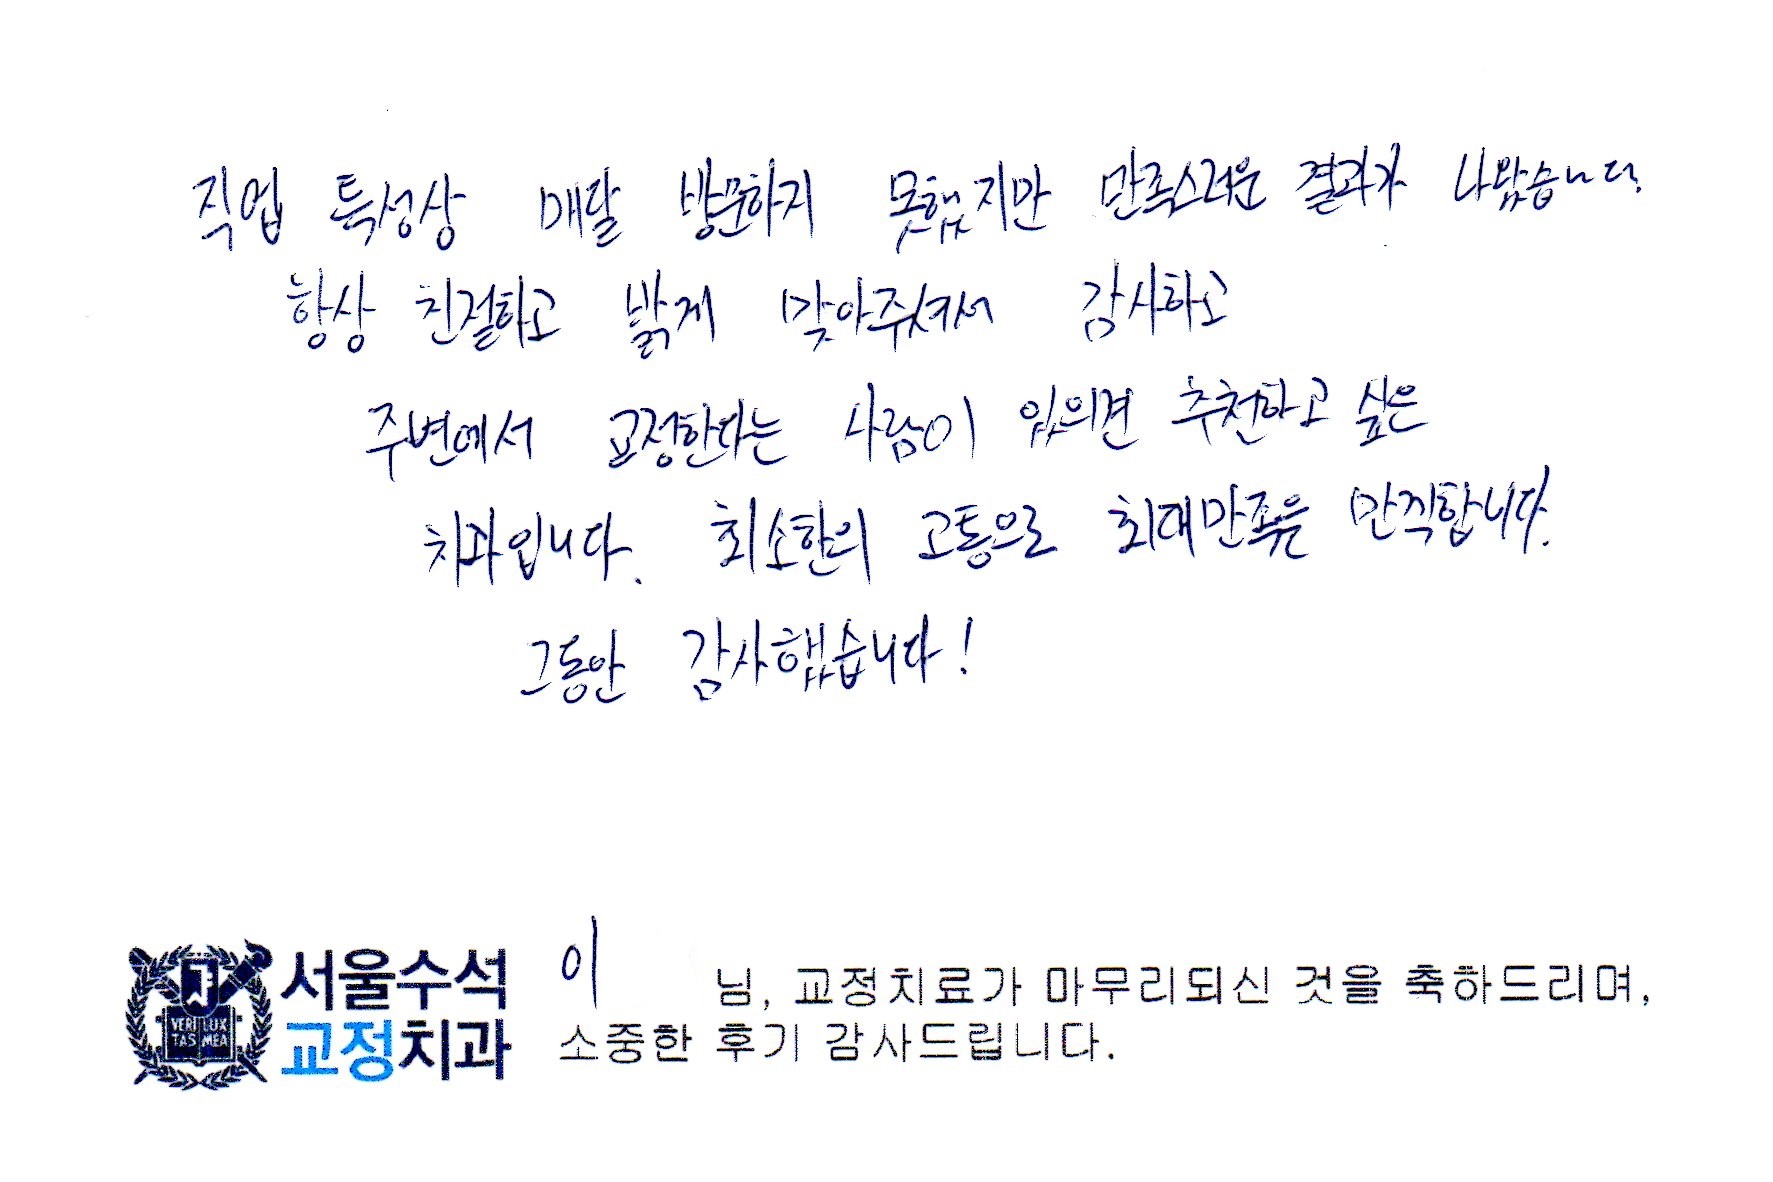 직업 특성상 매달 방문하지 못했지만 만족스러운 결과가 나왔습니다.
항상 친절하고 밝게 맞아주셔서 감사하고
주변에서 교정한다는 사람이 있의면 추천하고 싶은
치과입니다. 최소한의 고통으로 최대만족을 만끽합니다.
그동안 감사했습니다!
이 님, 교정치료가 마무리되신 것을 축하드리며,
소중한 후기 감사드립니다.
서울수석
교정치과
VERI LUX
TAS MEA